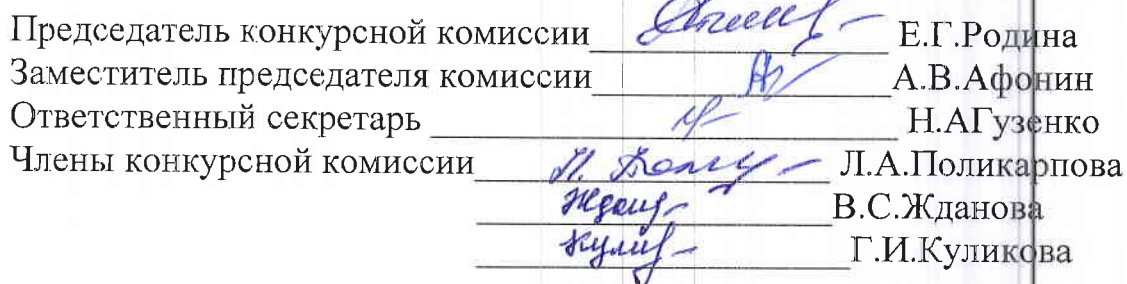 Председатель конкурсной комиссии Е.Г.Родина
Заместитель председателя комиссии А.В.Афонин
Ответственный секретарь Н.АГузенко
Члены конкурсной комиссии Л.А.Поликарпова
В.С.Жданова
Г.И.Куликова